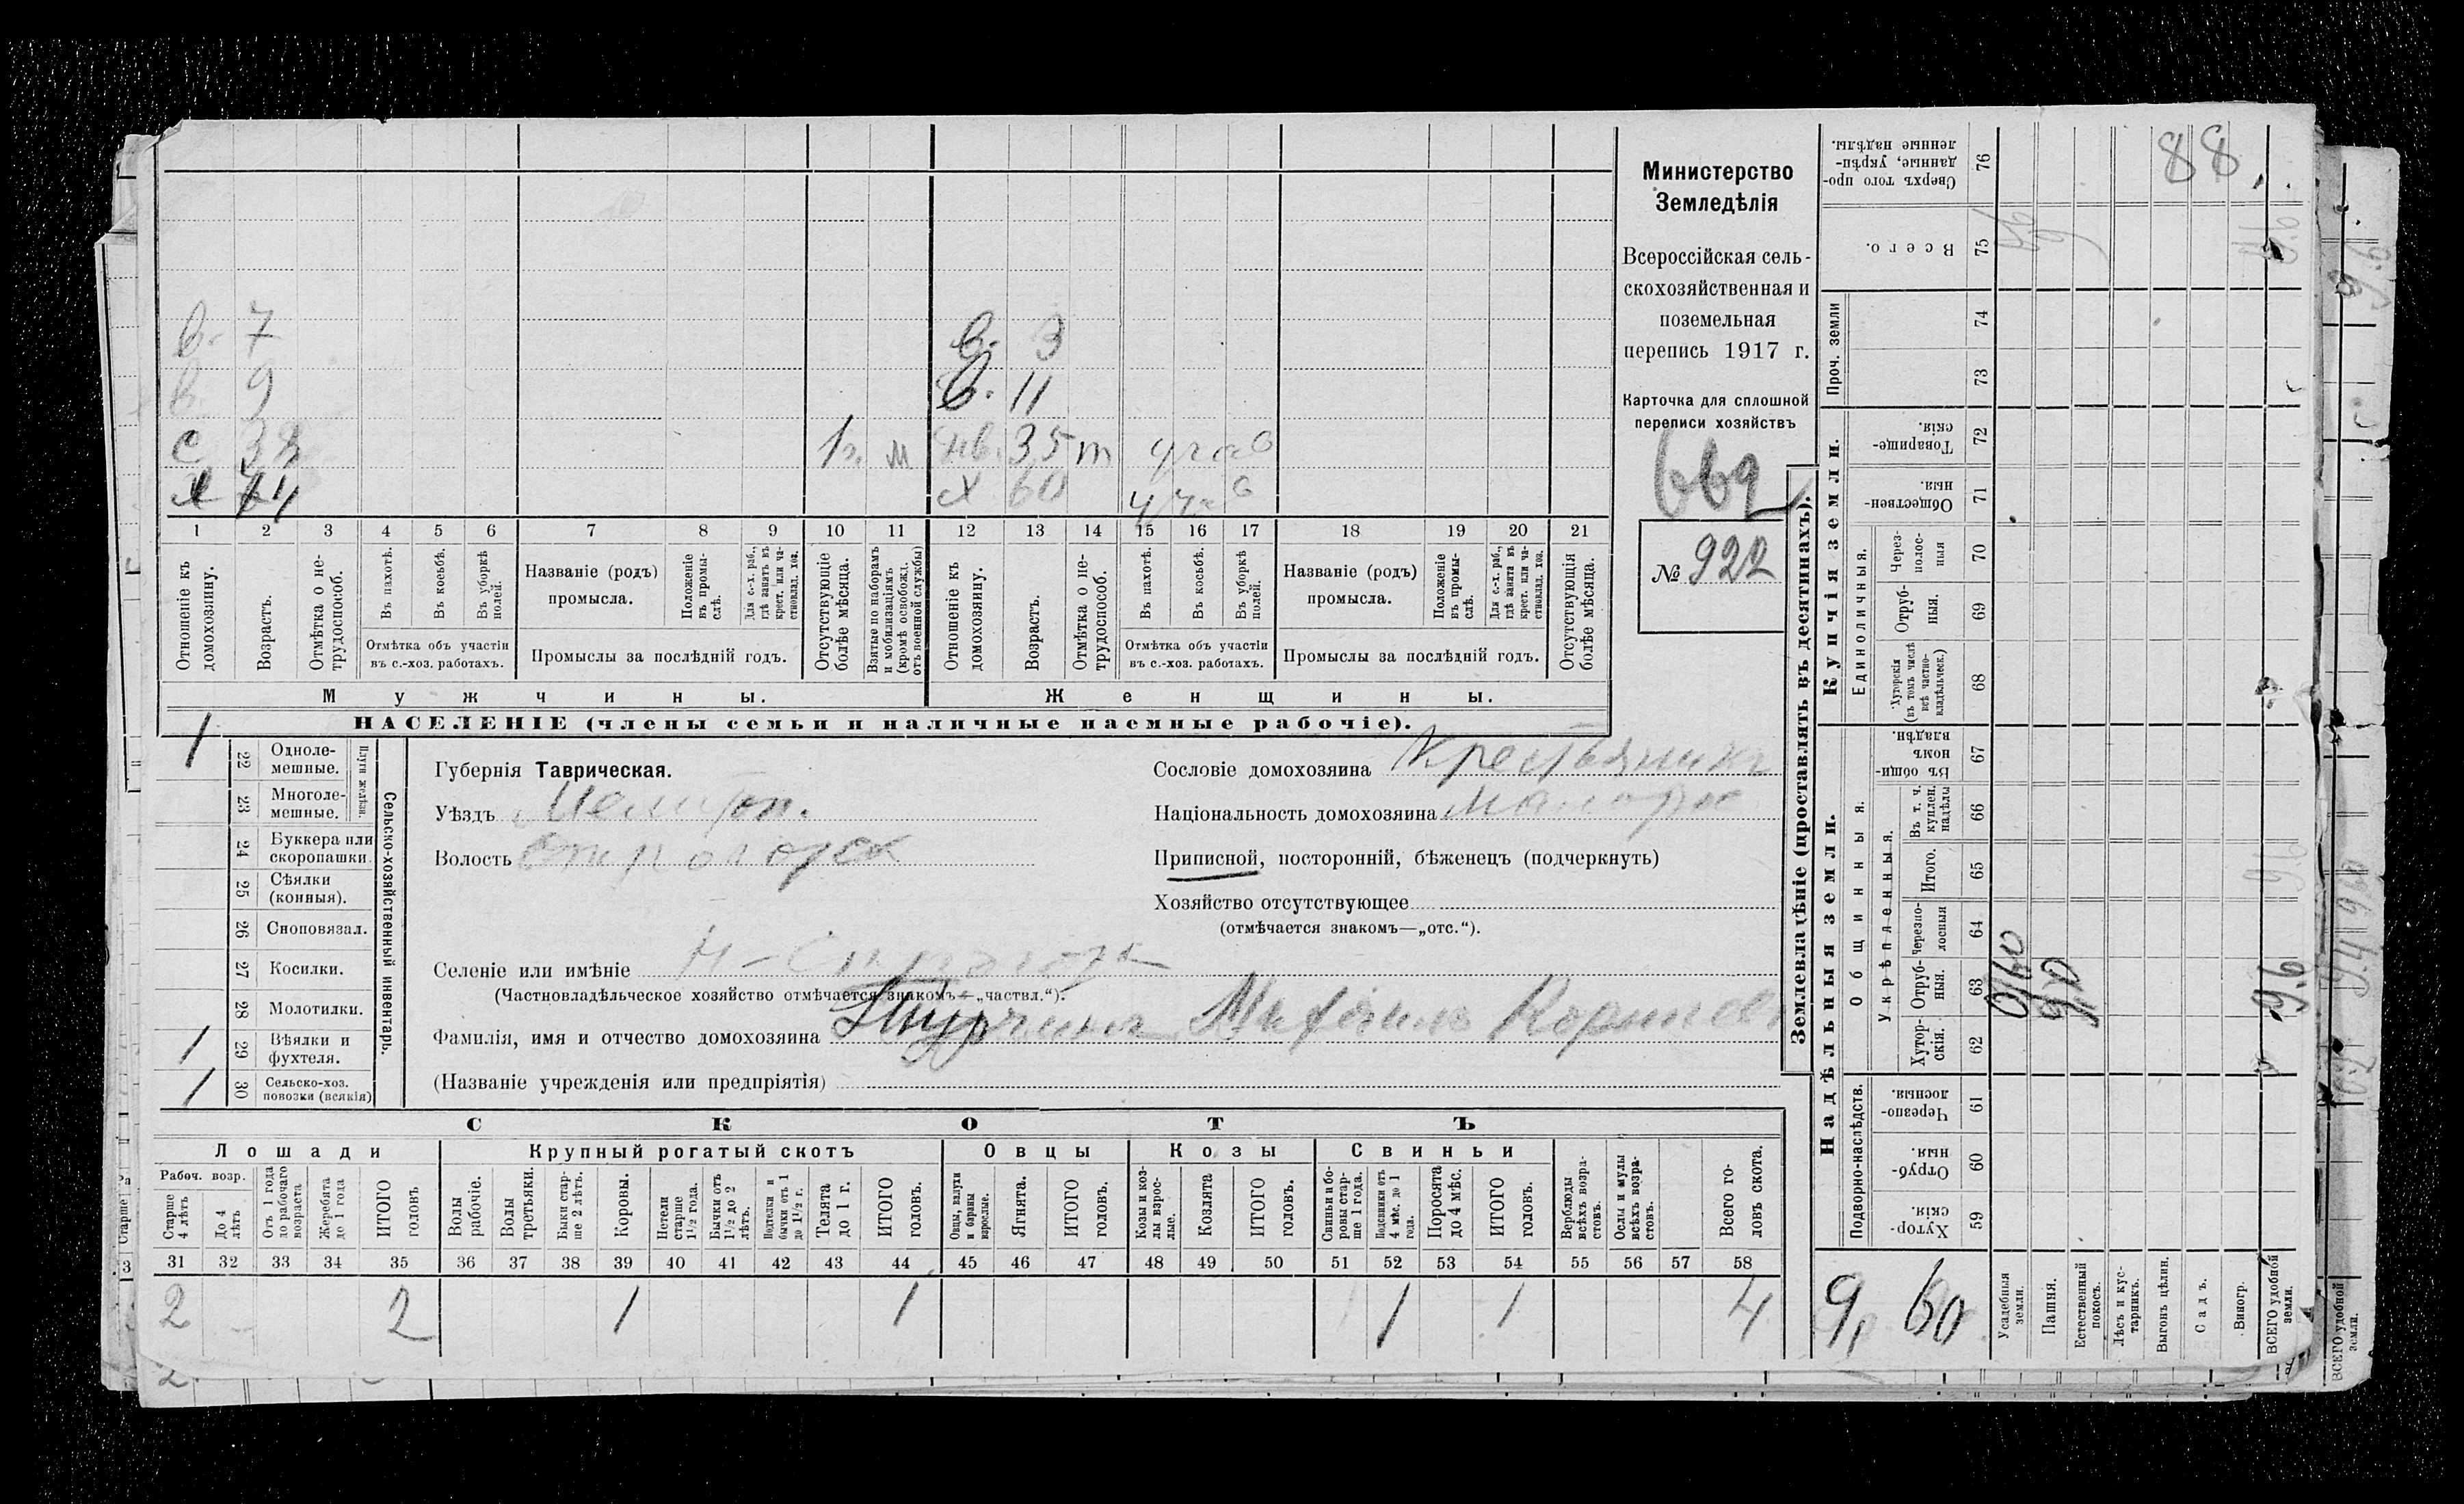 Министерство
Земледѣлія
Всероссійская сель-
скохозяйственная и
поземельная
перепись 1917 г.
Карточка для сплошной
переписи хозяйствъ
№ 922
88
в. 7
в. 9
с 38
х
в. 3
в. 11
35 т
х 60
1 2 3 4 5 6 7 8 9 10 11 12 13 14 15 16 17 18 19 20 21
Отношеніе къ домохозяину.
Возрастъ.
Отмѣтка о не-трудоспособ.
Въ пахотѣ.
Въ косьбѣ.
Въ уборкѣ полей.
Отмѣтка объ участіи
въ с.-хоз. работахъ.
Названіе (родъ)
промысла.
Положеніе въ промы-слѣ.
Для с.-х. раб., гдѣ занятъ въ крест. или ча-стновлад. хоз.
Промыслы за послѣдній годъ.
Отсутствующіе болѣе мѣсяца.
Взятые по наборамъ и мобилизаціямъ (кромѣ освобожд. отъ военной службы)
Отношеніе къ домохозяину.
Возрастъ.
Отмѣтка о не-трудоспособ.
Въ пахотѣ.
Въ косьбѣ.
Въ уборкѣ полей.
Отмѣтка объ участіи
въ с.-хоз. работахъ.
Названіе (родъ)
промысла.
Положеніе въ промы-слѣ.
Для с.-х. раб., гдѣ занята въ крест. или ча-стновлад. хоз.
Промыслы за послѣдній годъ.
Отсутствующія болѣе мѣсяца.
Мужчины.
Женщины.
НАСЕЛЕНІЕ (члены семьи и наличные наемные рабочіе).
Сельско-хозяйственный инвентарь.
Плуги желѣзн.
1 22 Одноле-мешные.
23 Многоле-мешные.
24 Буккера или скоропашки.
25 Сѣялки (конныя).
26 Сноповязал.
27 Косилки.
28 Молотилки.
1 29 Вѣялки и фухтеля.
1 30 Сельско-хоз. повозки (всякія)
Губернія Таврическая.
Уѣздъ Мелитоп.
Волость
Селеніе или имѣніе
(Частновладѣльческое хозяйство отмѣчается знакомъ—„частвл.“).
Фамилія, имя и отчество домохозяина
(Названіе учрежденія или предпріятія)
Сословіе домохозяина Крестьянинъ
Національность домохозяина
Приписной, посторонній, бѣженецъ (подчеркнуть)
Хозяйство отсутствующее
(отмѣчается знакомъ—„отс.“).
СКОТЪ
Лошади
Крупный рогатый скотъ
Овцы
Козы
Свиньи
Рабоч. возр.
Старше 4 лѣтъ
До 4 лѣтъ
Отъ 1 года до рабочаго возраста
Жеребята до 1 года
ИТОГО головъ
Волы рабочіе.
Волы третьяки.
Быки стар-ше 2 лѣтъ.
Коровы.
Нетели старше 1½ года.
Бычки отъ 1½ до 2 лѣтъ.
Подтелки и бычки отъ 1 до 1½ г.
Телята до 1 г.
ИТОГО головъ.
Овцы, валухи и бараны взрослые.
Ягнята.
ИТОГО головъ.
Козы и коз-лы взрос-лые.
Козлята
ИТОГО головъ.
Свиньи и бо-ровы стар-ше 1 года.
Подсвинки отъ 4 мѣс. до 1 года.
Поросята до 4 мѣс.
ИТОГО головъ.
Верблюды всѣхъ возра-стовъ.
Ослы и мулы всѣхъ возра-стовъ.
Всего го-ловъ скота.
31 32 33 34 35 36 37 38 39 40 41 42 43 44 45 46 47 48 49 50 51 52 53 54 55 56 57 58
2 2 1 1 1 1 4
Землевладѣніе (проставлять въ десятинахъ).
Надѣльныя земли.
Купчія земли.
Проч. земли
Подворно-наслѣдств.
Общинныя.
Укрѣпленныя.
Единоличныя.
Сверхъ того про-данные, укрѣп-ленные надѣлы. 76
Всего. 75
74
73
Товарище-скія. 72
Обществен-ныя. 71
Через-полос-ныя 70
Отруб-ныя. 69
Хуторскія (въ томъ числѣ всѣ частно-владѣльческ.) 68
Въ общин-номъ владѣн. 67
Въ т. ч. куплен. надѣлы 66
Итого. 65
Черезпо-лосныя 64
Отруб-ныя. 63
Хутор-скія. 62
Черезпо-лосныя. 61
Отруб-ныя. 60
Хутор-скія. 59
9,60
9.6
Усадебныя земли.
Пашня.
Естественный покосъ.
Лѣсъ и кус-тарникъ.
Выгонъ цѣлин.
Садъ.
Виногр.
ВСЕГО удобной земли.
ВСЕГО удобной земли.